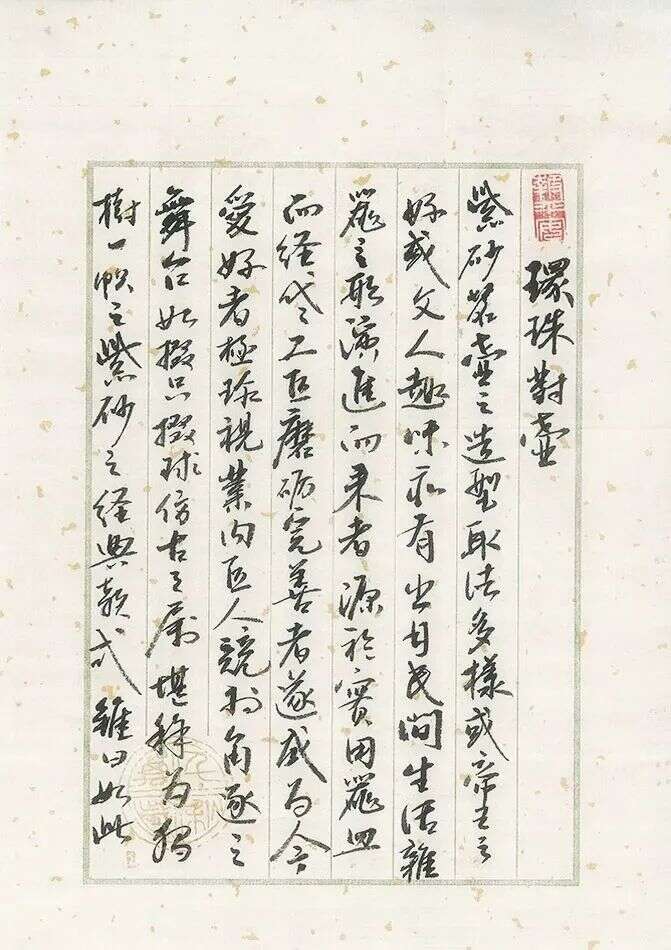 環珠對壺
紫砂茗壺之造型取法多樣或帝王之
好或文人趣味亦有出自民間生活雜
器之形演進而来者源於實用器皿
而经代之工匠磨砺完善者遂成为今
愛好者極珍視業内匠人競相角逐之
舞台如掇只掇球仿古之属堪稱为獨
樹一帜之紫砂之经典款式雖曰如此